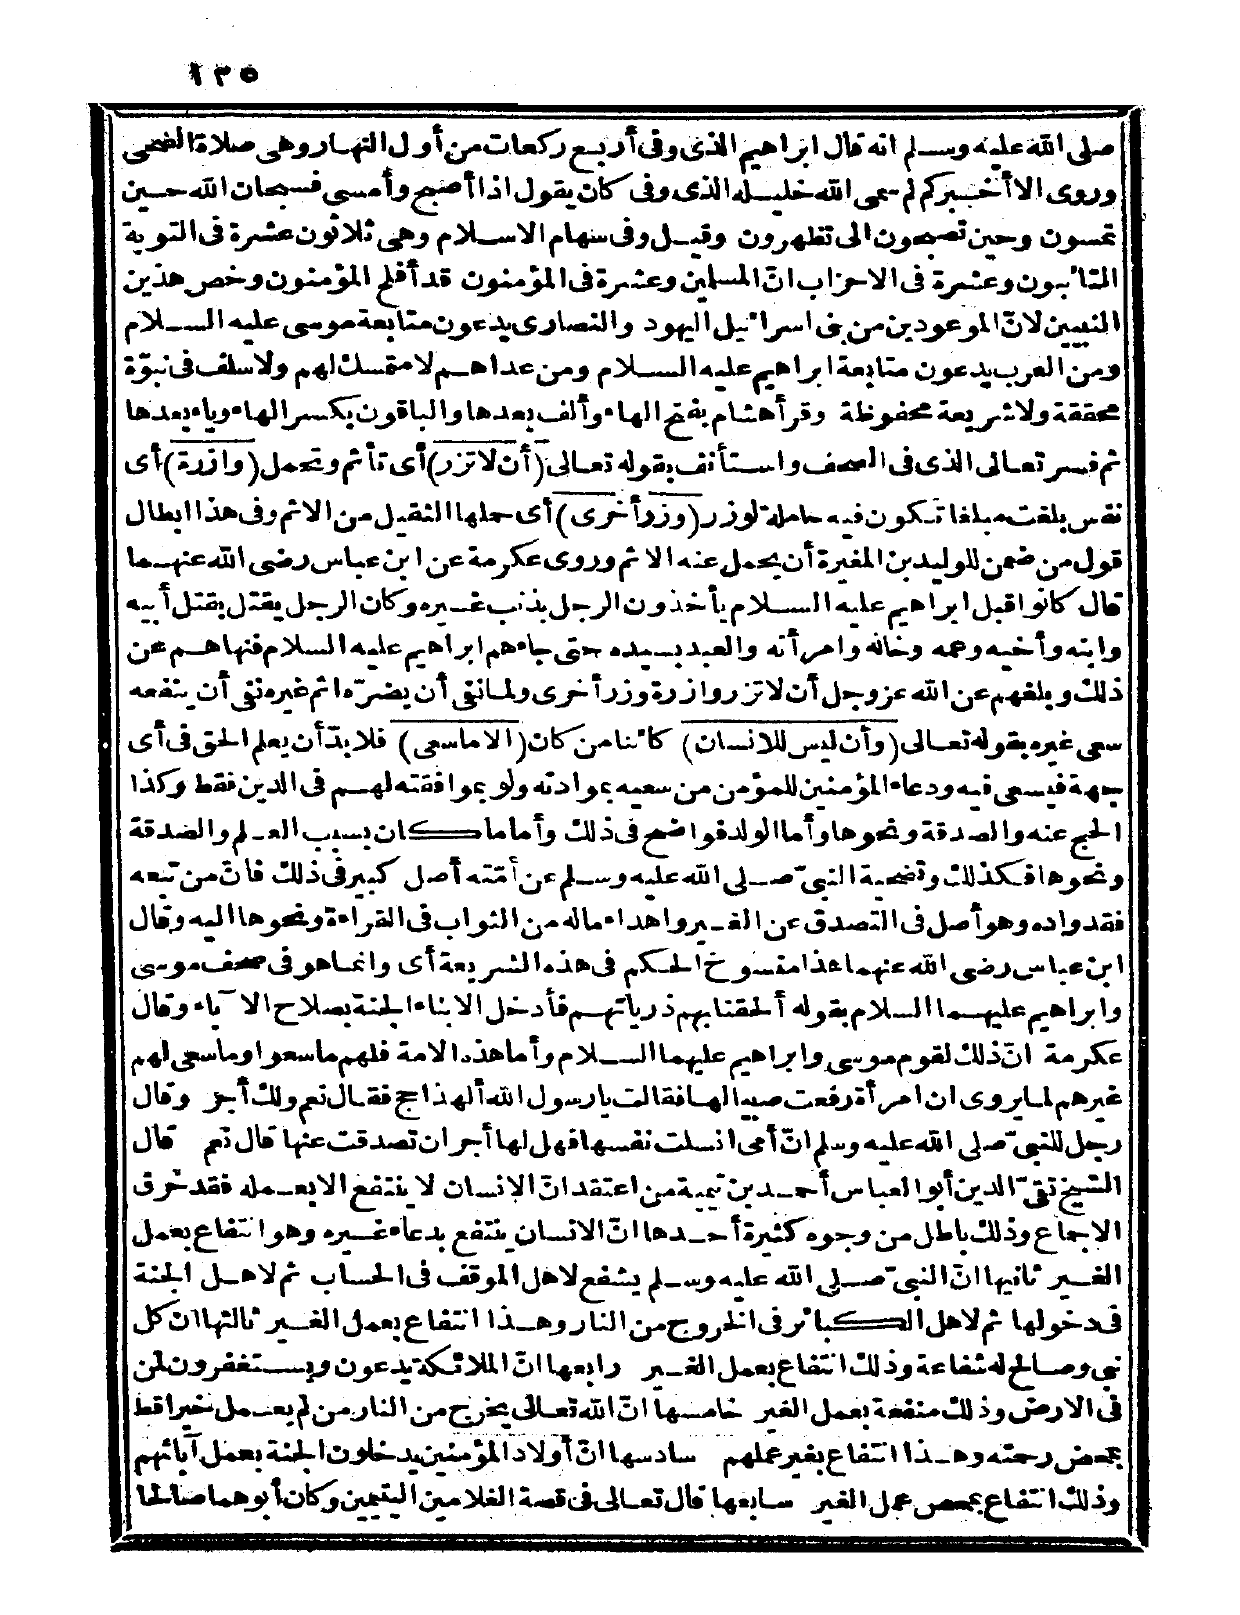 ١٣٥
صلى الله عليه وسلم انه قال ابراهيم الذى وفى أربع ركعات من أول النهار وهى صلاة الضحى
وروى الا أخبركم لم سمى الله خليله الذى وفى كان يقول اذا أصبح وأمسى فسبحان الله حين
تمسون وحين تصبحون الى تظهرون وقيل وفى سهام الاسلام وهى ثلاثون عشرة فى التوبة
التائبون وعشرة فى الاحزاب انّ المسلمين وعشرة فى المؤمنون قد أفلح المؤمنون وخص هذين
النبيين لانّ الموعودين من بنى اسرائيل اليهود والنصارى يدعون متابعة موسى عليه السلام
ومن العرب يدعون متابعة ابراهيم عليه السلام ومن عداهم لا متمسك لهم ولا سلف فى نبوّة
محققة ولا شريعة محفوظة وقرأ هشام بفتح الهاء وألف بعدها والباقون بكسر الهاء وياء بعدها
ثم فسر تعالى الذى فى الصحف واستأنف بقوله تعالى (أن لا تزر) أى تأثم وتحمل (وازرة) أى
نفس بلغت مبلغا تكون فيه حاملة لوزر (وزر أخرى) أى حملها الثقيل من الاثم وفى هذا ابطال
قول من ضمن للوليد بن المغيرة أن يحمل عنه الاثم وروى عكرمة عن ابن عباس رضى الله عنهما
قال كانوا قبل ابراهيم عليه السلام يأخذون الرجل بذنب غيره وكان الرجل يقتل بقتل أبيه
وابنه وأخيه وعمه وخاله وامرأته والعبد بسيده حتى جاءهم ابراهيم عليه السلام فنهاهم عن
ذلك وبلغهم عن الله عز وجل أن لا تزر وازرة وزر أخرى ولما نفى أن يضرّه اثم غيره نفى أن ينفعه
سعى غيره بقوله تعالى (وأن ليس للانسان) كائنا من كان (الا ما سعى) فلا بدّ أن يعلم الحق فى أى
جهة فيسعى فيه ودعاء المؤمنين للمؤمن من سعيه بموادته ولو بموافقته لهم فى الدين فقط وكذا
الحج عنه والصدقة ونحوها وأما الولد فواضح فى ذلك وأما ما كان بسبب العلم والصدقة
ونحوها فكذلك وتضحية النبىّ صلى الله عليه وسلم عن أمّته أصل كبير فى ذلك فانّ من تبعه
فقد واده وهو أصل فى التصدق عن الغير واهداء ماله من الثواب فى القراءة ونحوها اليه وقال
ابن عباس رضى الله عنهما هذا منسوخ الحكم فى هذه الشريعة أى وانما هو فى صحف موسى
وابراهيم عليهما السلام بقوله ألحقنا بهم ذرياتهم فأدخل الابناء الجنة بصلاح الآباء وقال
عكرمة انّ ذلك لقوم موسى وابراهيم عليهما السلام وأما هذه الامة فلهم ما سعوا وما سعى لهم
غيرهم لما يروى ان امرأة رفعت صبيا لها فقالت يا رسول الله ألهذا حج فقال نعم ولك أجر وقال
رجل للنبىّ صلى الله عليه وسلم انّ أمى انسلت نفسها فهل لها أجر ان تصدقت عنها قال نعم قال
الشيخ تقىّ الدين أبو العباس أحمد بن تيمية من اعتقد انّ الانسان لا ينتفع الا بعمله فقد خرق
الاجماع وذلك باطل من وجوه كثيرة أحدها انّ الانسان ينتفع بدعاء غيره وهو انتفاع بعمل
الغير ثانيها انّ النبىّ صلى الله عليه وسلم يشفع لاهل الموقف فى الحساب ثم لاهل الجنة
فى دخولها ثم لاهل الكبائر فى الخروج من النار وهذا انتفاع بعمل الغير ثالثها انّ كل
نبى وصالح له شفاعة وذلك انتفاع بعمل الغير رابعها انّ الملائكة يدعون ويستغفرون لمن
فى الارض وذلك منفعة بعمل الغير خامسها انّ الله تعالى يخرج من النار من لم يعمل خيرا قط
بمحض رحمته وهذا انتفاع بغير عملهم سادسها انّ أولاد المؤمنين يدخلون الجنة بعمل آبائهم
وذلك انتفاع بمحض عمل الغير سابعها قال تعالى فى قصة الغلامين اليتيمين وكان أبوهما صالحا